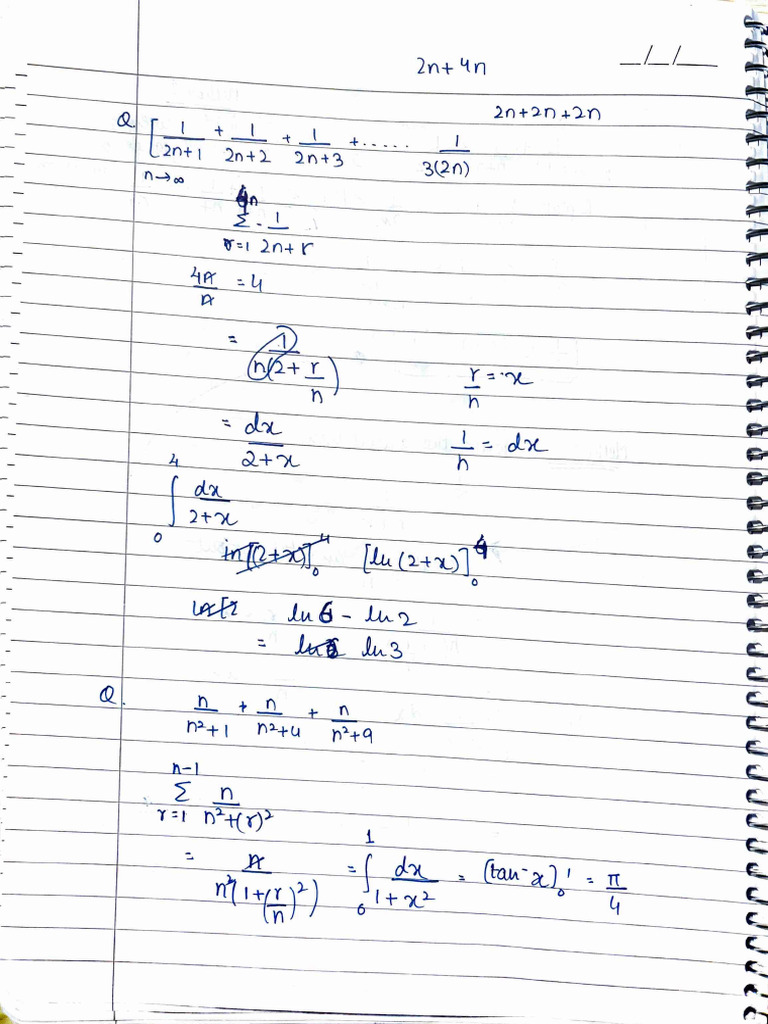 2n+4n
_/_/__
2n+2n+2n
Q [1/(2n+1) + 1/(2n+2) + 1/(2n+3) +..... 1/3(2n)
n→∞
4n
Σ 1/(2n+r)
r=1
4n/n = 4
= 1/(n(2+r/n)) r/n = x
= dx/(2+x) 1/n = dx
∫₀⁴ dx/(2+x)
ln[(2+x)]₀⁴ [ln(2+x)]₀⁴
ln6 - ln2
= ln3
Q. n/(n²+1) + n/(n²+4) + n/(n²+9)
n-1
Σ n/(n²+(r)²)
r=1
= n/(n²(1+(r/n)²)) = ∫₀¹ dx/(1+x²) = (tan⁻x]₀¹ = π/4